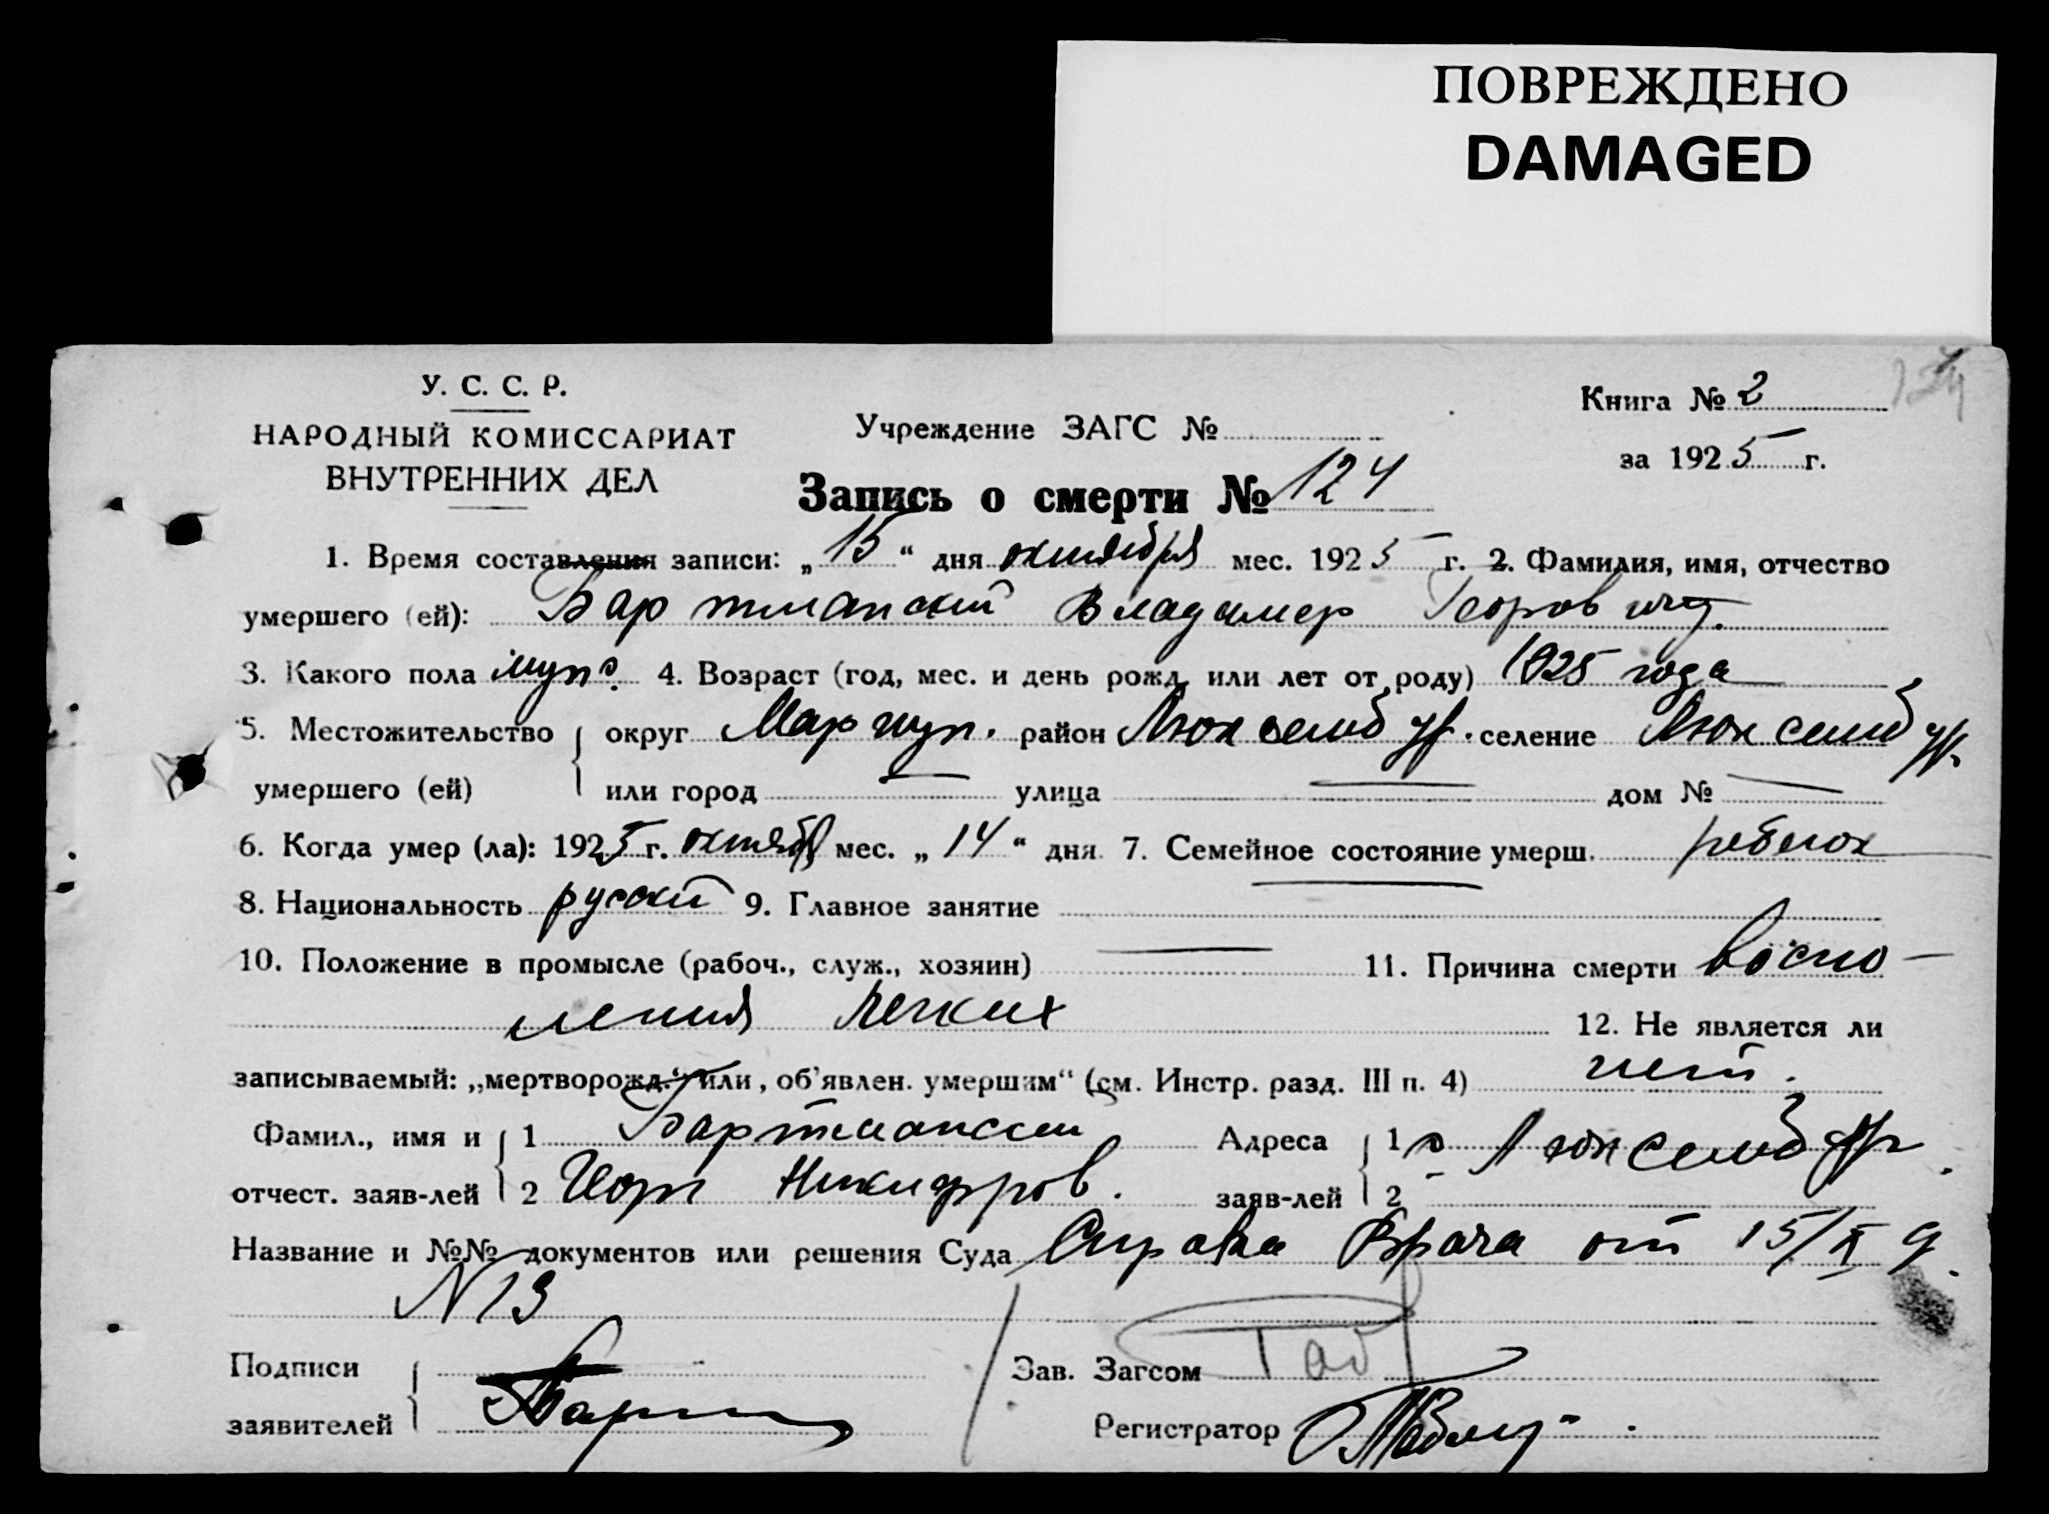 ПОВРЕЖДЕНО
DAMAGED
У. С. С. Р.
НАРОДНЫЙ КОМИССАРИАТ
ВНУТРЕННИХ ДЕЛ
Учреждение ЗАГС №
Книга № 2
за 1925 г.
Запись о смерти № 124
1. Время составления записи: „15“ дня октября мес. 1925 г. 2. Фамилия, имя, отчество
умершего (ей): Бартманский Владимер Георович.
3. Какого пола муж. 4. Возраст (год, мес. и день рожд. или лет от роду) 1925 года
5. Местожительство округ Мариуп. район Люксембург. селение Люксембург
умершего (ей) или город — улица — дом № —
6. Когда умер (ла): 1925 г. октября мес. „14“ дня 7. Семейное состояние умерш. ребенок
8. Национальность русский 9. Главное занятие —
10. Положение в промысле (рабоч., служ., хозяин) — 11. Причина смерти воспо-
ления легких 12. Не является ли
записываемый: „мертворожд.“ или „об'явлен. умершим“ (см. Инстр. разд. III п. 4) нет.
Фамил., имя и 1 Бартманский Адреса 1 с Люксембург.
отчест. заяв-лей 2 Никифров. заяв-лей 2
Название и №№ документов или решения Суда Справка Врача от 15/X
N 13
Подписи Зав. Загсом
заявителей Регистратор